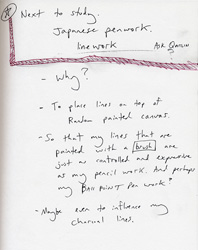 Next to study.
Japanese penwork.
linework
Ask Qaisin
- Why?
- To place lines on top of
Random painted canvas.
- So that my lines that are
painted with a brush are
just as controlled and expressive
as my pencil work. And perhaps
my Ball point Pen work?
- Maybe even to influence my
charcoal lines.